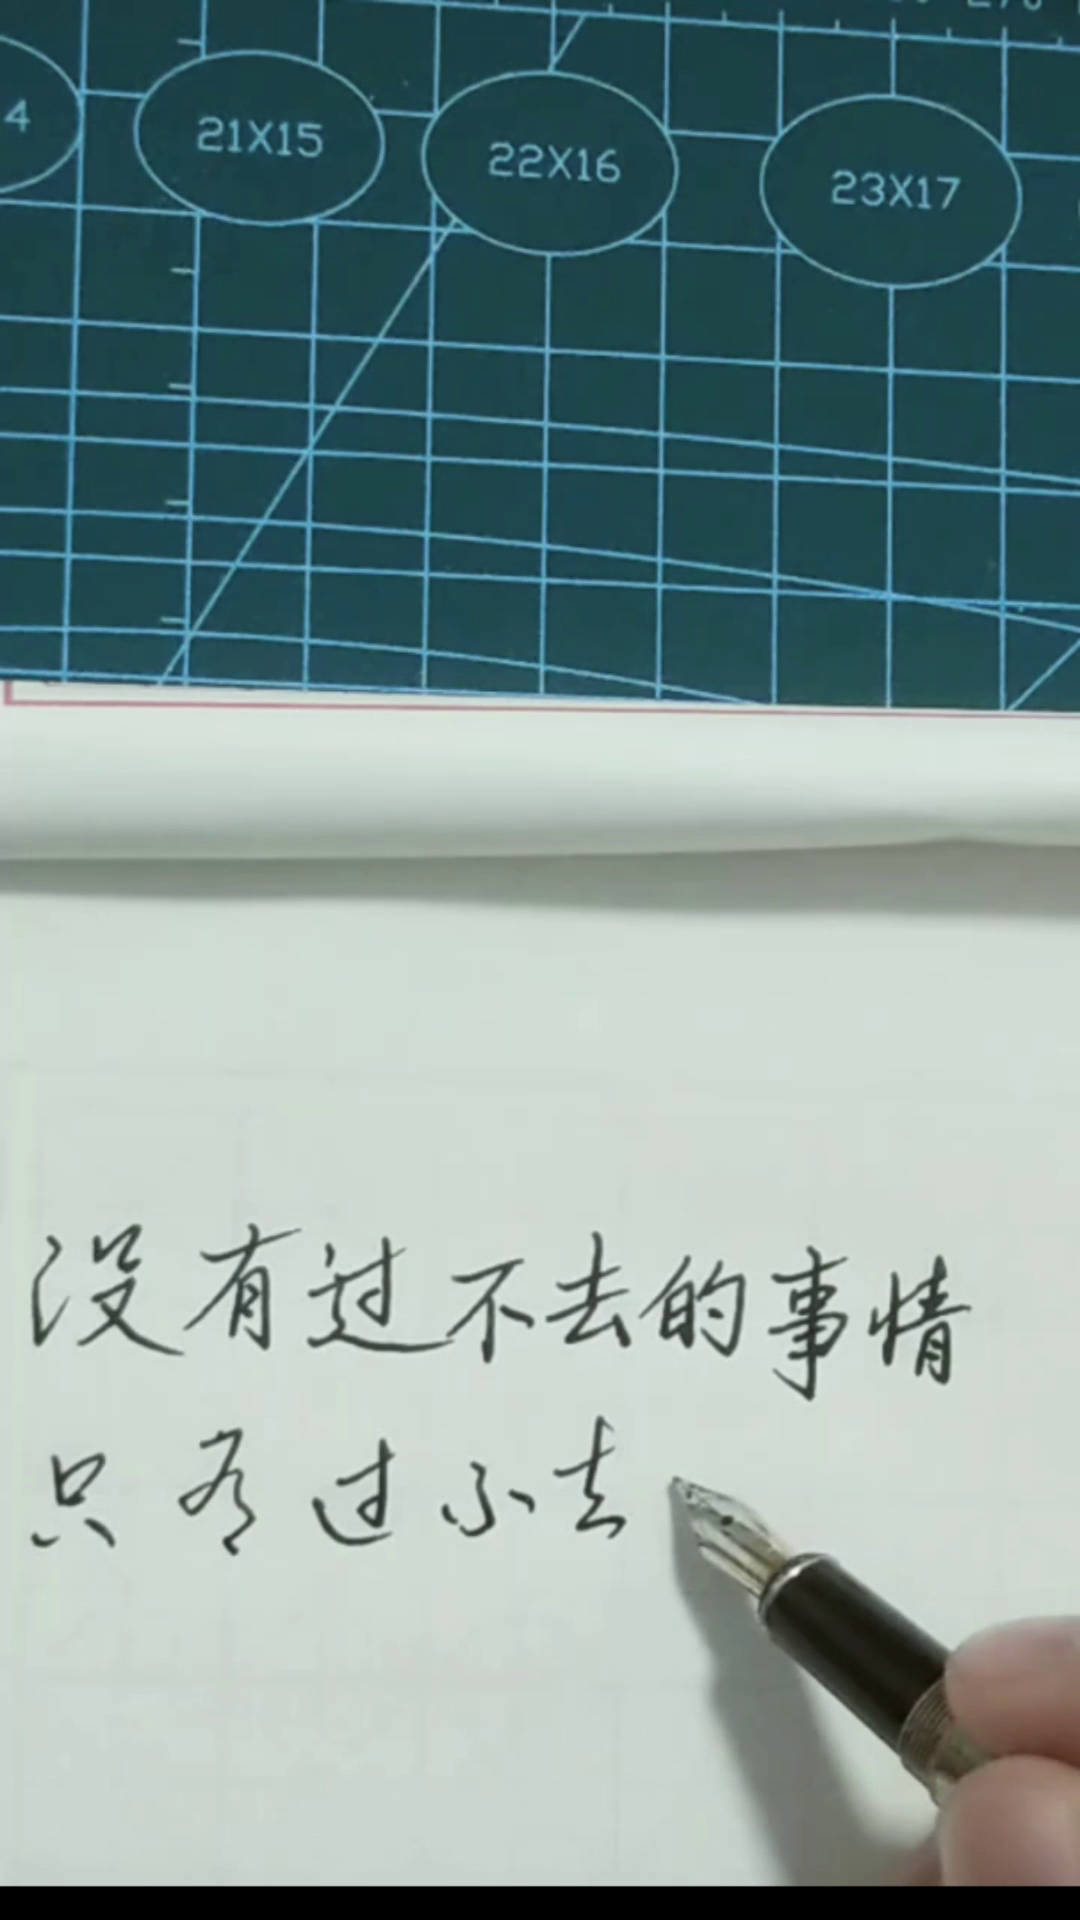 4 21X15 22X16 23X17
没有过不去的事情
只有过不去